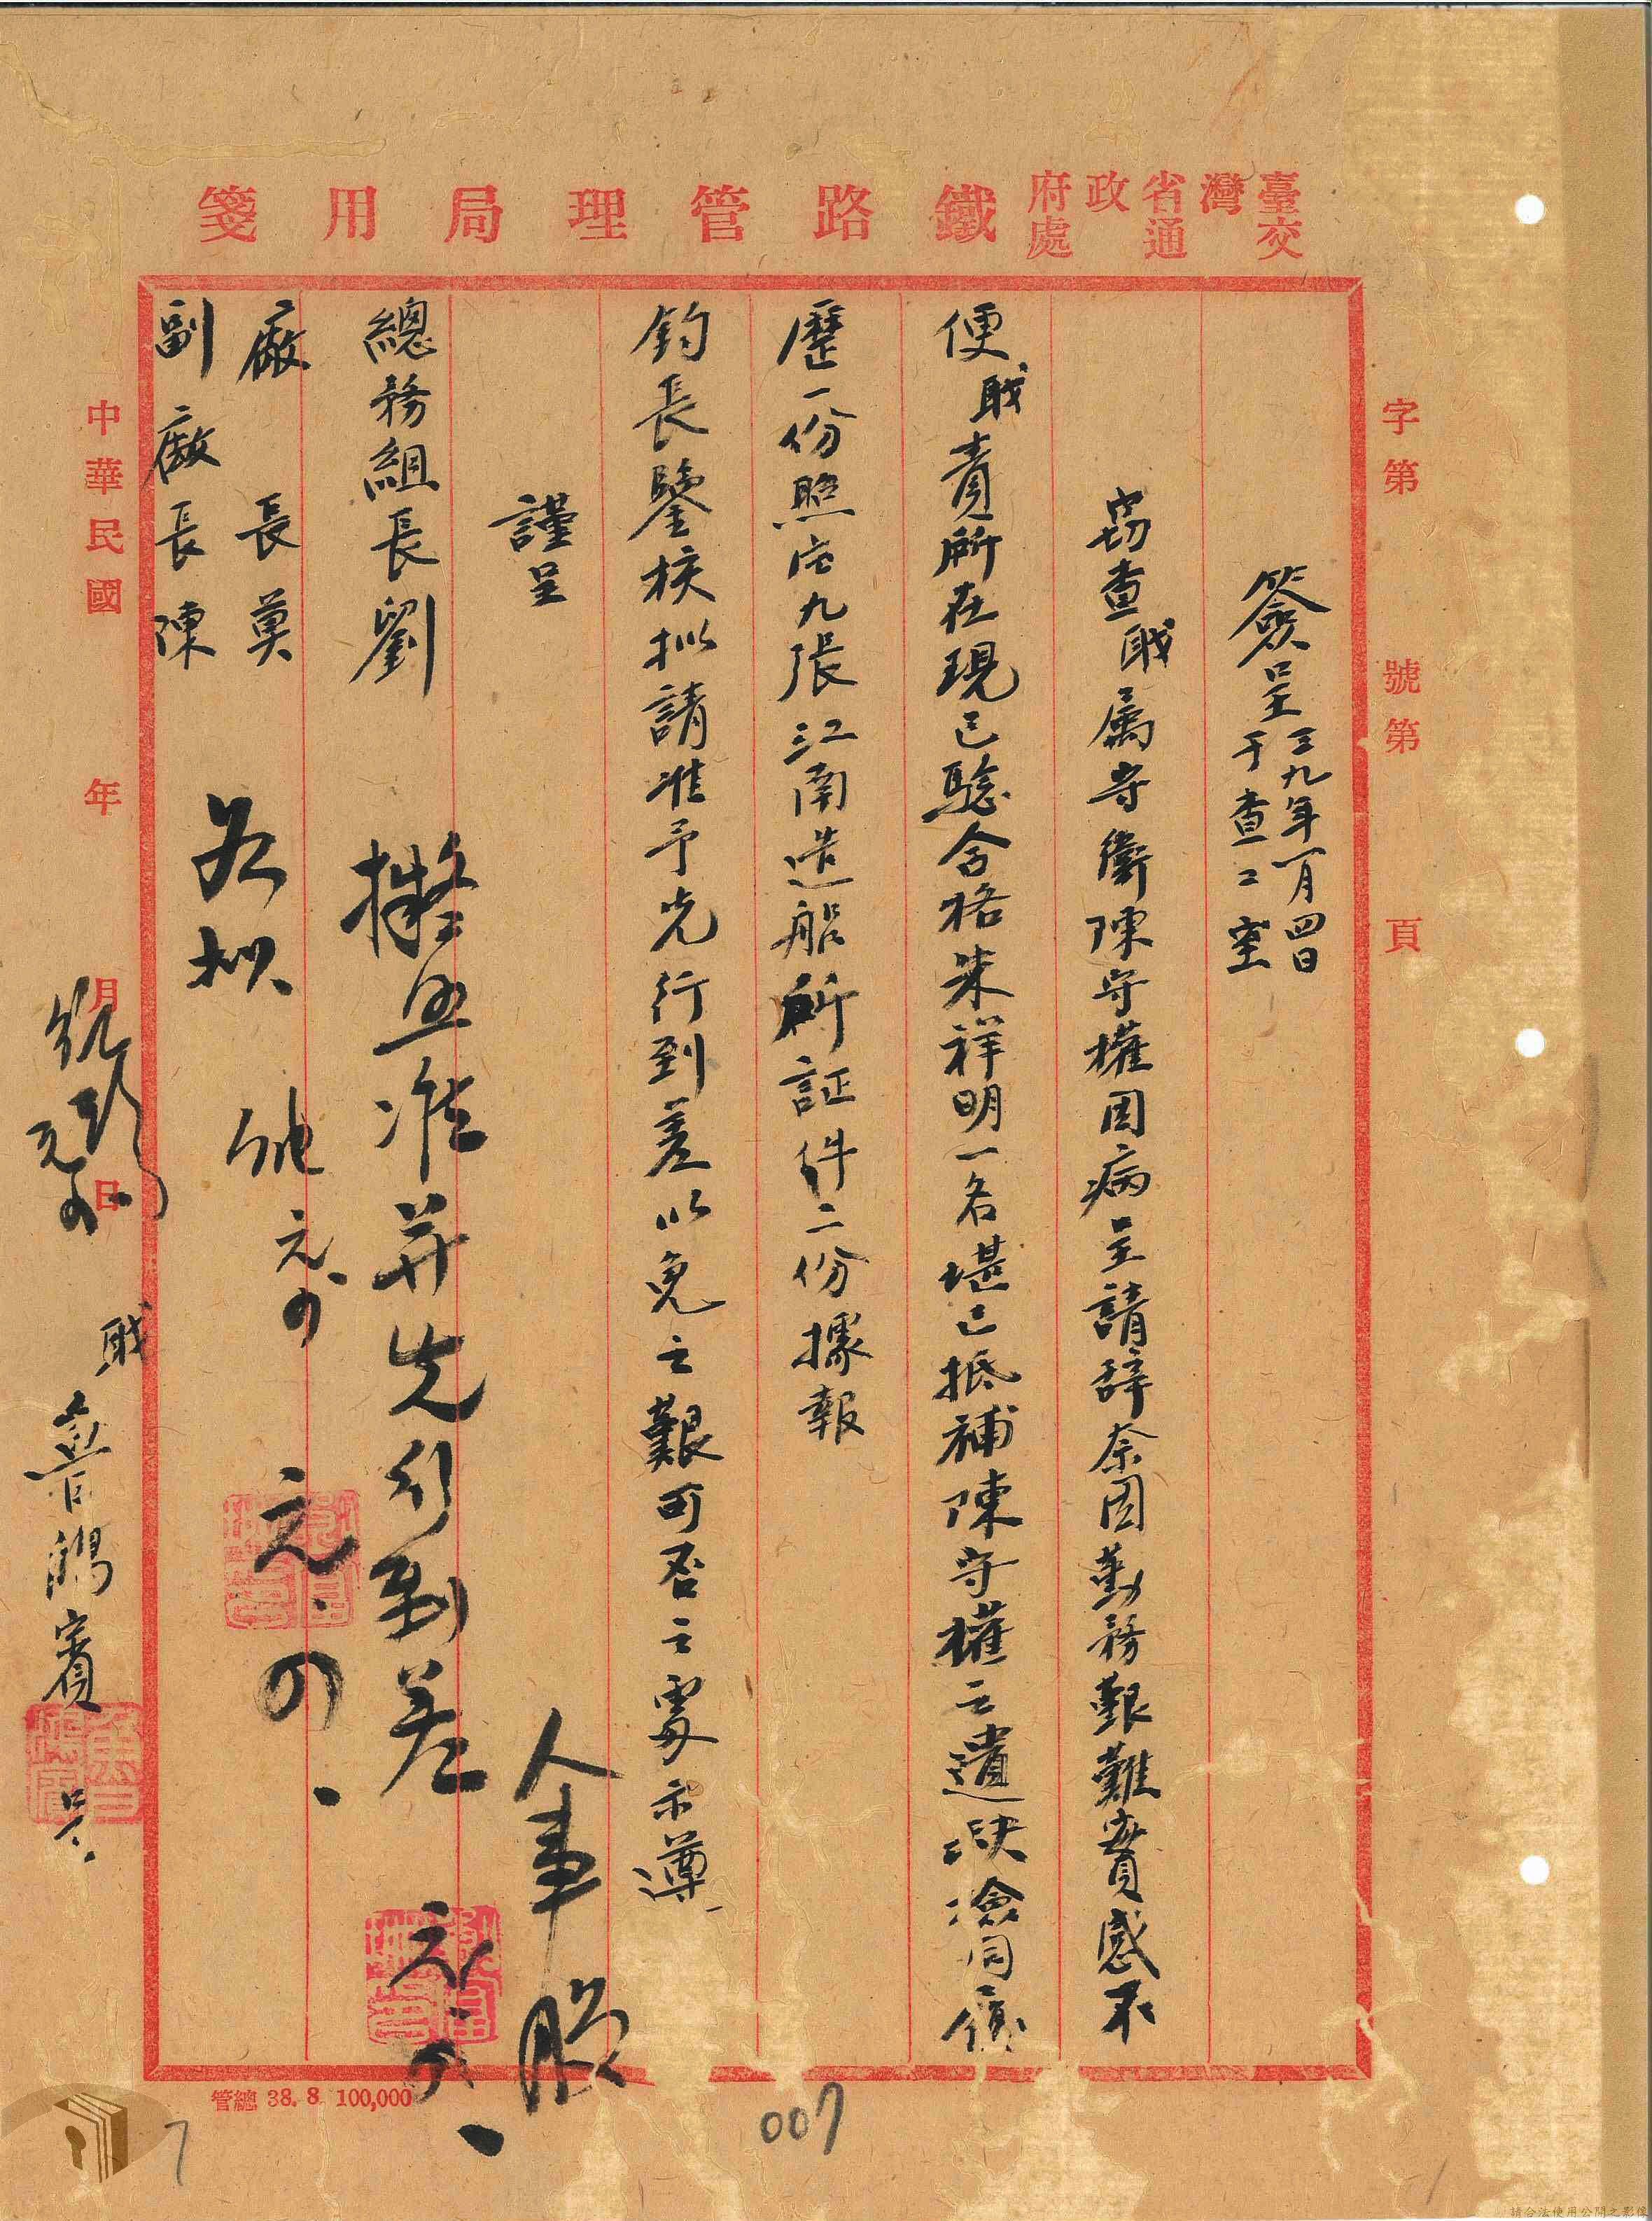 臺灣省政府交通處鐵路管理局用箋
字第　號第　頁
簽呈 三九年一月四日
于查工室
竊查職屬守衛陳守權因病呈請辞奈因勤務艱難實感不
便職責所在現已驗合格朱祥明一名堪已抵補陳守權之遺缺檢同履
歷一份照片九張江南造船所証件二份據報
鈞長鑒核拟請准予先行到差以免之艱可否之處示遵
謹呈
總務組長劉
廠長莫
副廠長陳
職 魯鴻賓 呈
人事股
擬照准并先行到差 元.四.
元.四.
如拟
元.四
中華民國　年　月　日
管總 38. 8. 100,000
007
7
請合法使用公開之影像